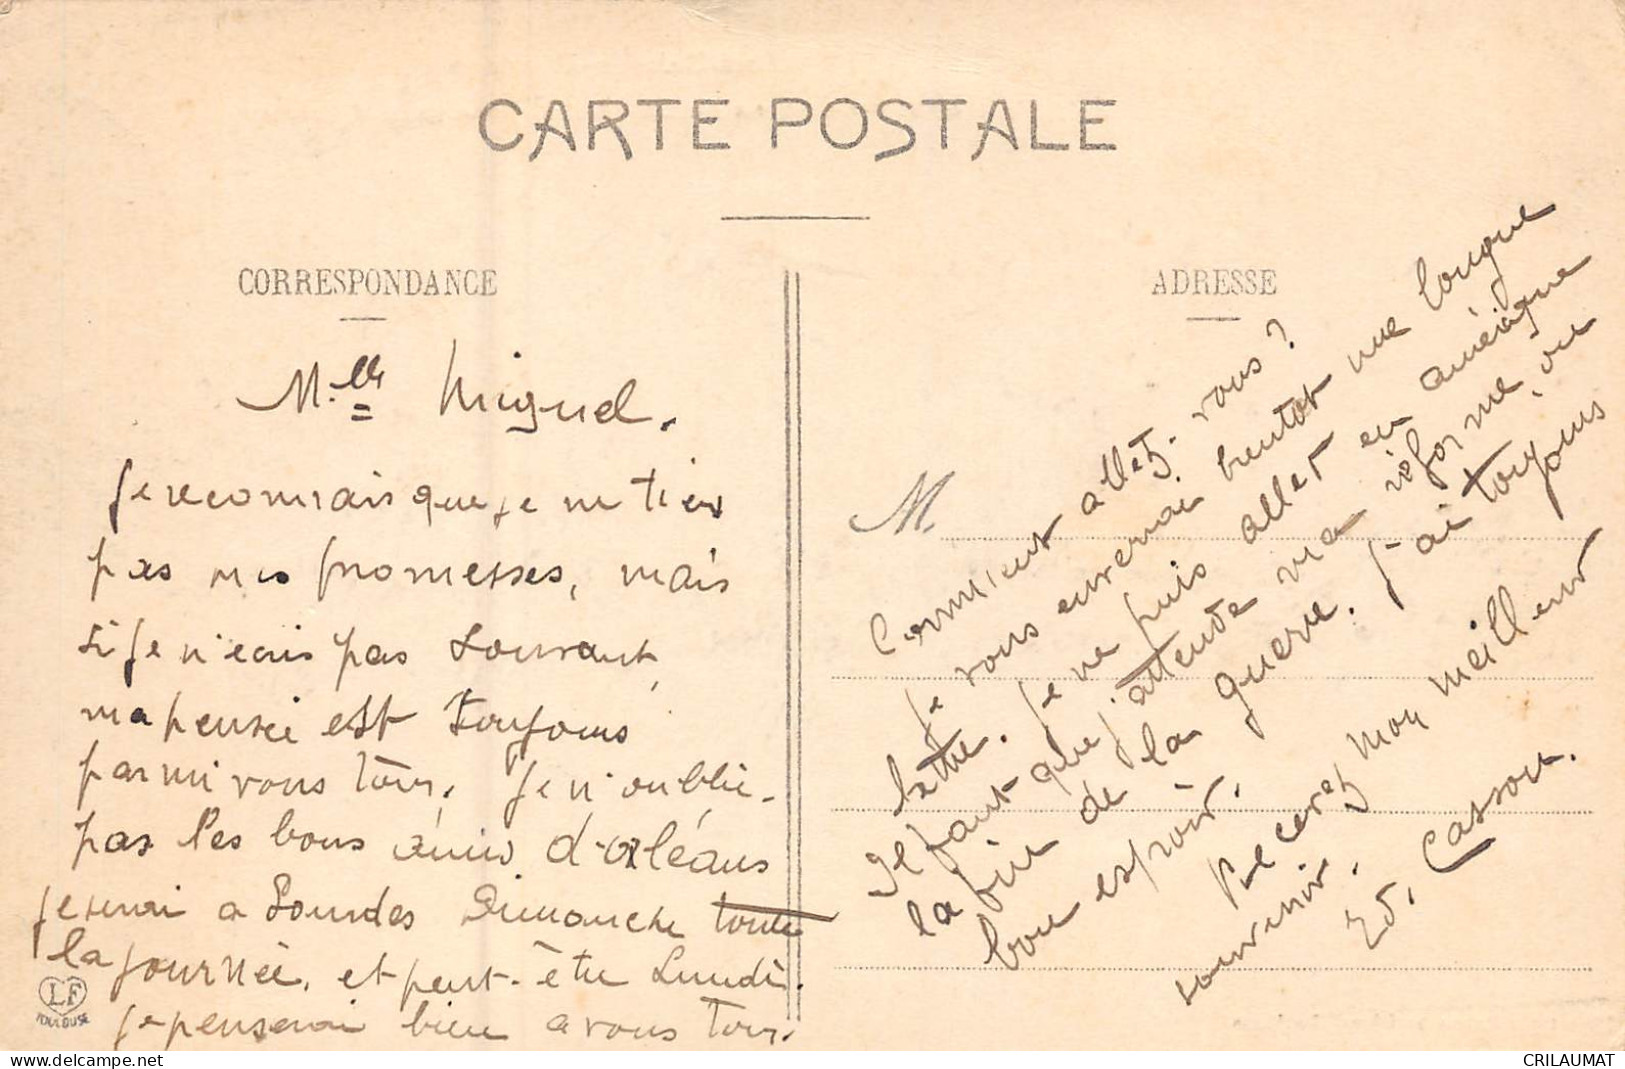 CARTE POSTALE
CORRESPONDANCE
ADRESSE
M.lle Miguel.
Je reconnais que je ne tiens
pas mes promesses, mais
si je n'ecris pas souvent,
ma pensée est toujours
parmi vous tous. Je n'oublie
pas les bons amis d'orléans
je serai a Lourdes Dimanche toute
la journée, et peut-être Lundi.
je penserai bien a vous tous.
LF
TOULOUSE
M.
Comment allez-vous?
Je vous enverrai bientot une longue
lettre. Je ne puis aller en amérique
Il faut que j'attende ma réforme, ou
la fin de la guerre. J'ai toujours
bon espoir.
Recevez mon meilleur
souvenir.
Ed. Casson.
CRILAUMAT
delcampe.net